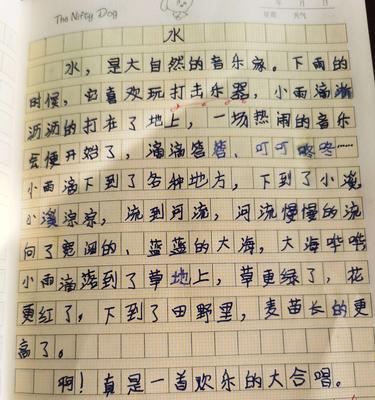 The Nifty Dog
年 月 日
星期 天气
水
水，是大自然的音乐家。下雨的
时候，它喜欢玩打击乐器，小雨滴淅
沥沥的打在了地上，一场热闹的音乐
会便开始了，滴滴答答、叮叮咚咚……
小雨滴下到了各种地方，下到了小溪，
小溪淙淙，流到河流，河流慢慢的流
向了宽阔的、蓝蓝的大海，大海哗哗，
小雨滴落到了草地上，草更绿了，花
更红了。下到了田野里，麦苗长的更
高了。
啊！真是一首欢乐的大合唱。